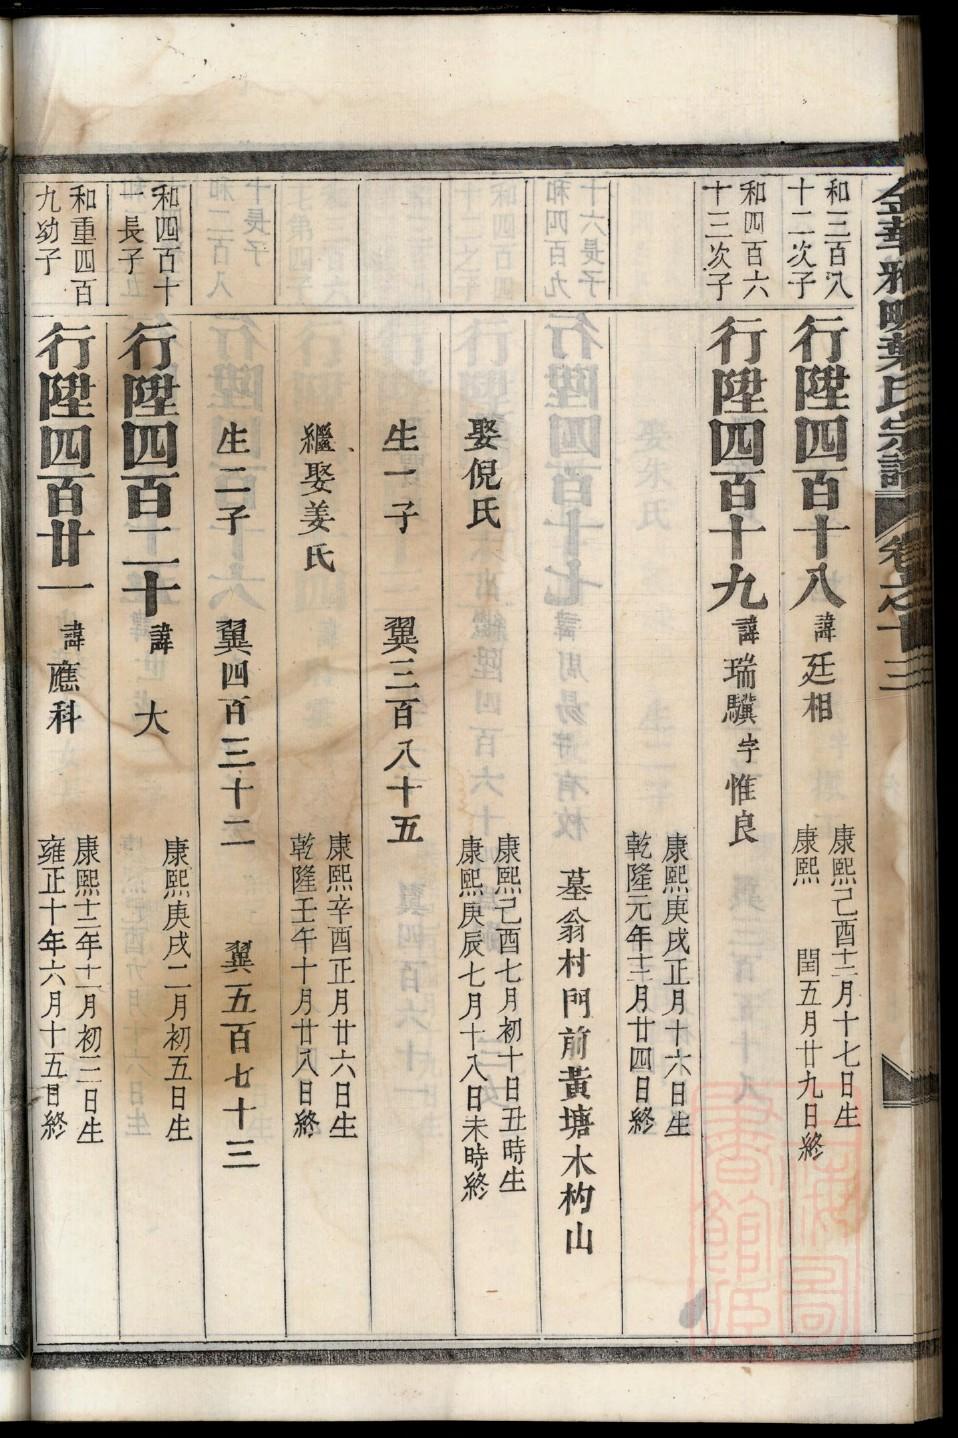 金華雅畈葉氏宗譜 卷之十三
和三百八
十二次子
行陞四百十八 諱廷相
康熙己酉十二月十七日生
康熙 閏五月廿九日終
和四百六
十三次子
行陞四百十九 諱瑞驥字惟良
康熙庚戌正月十六日生
乾隆元年十二月廿四日終
墓翁村門前黃塘木杓山
娶倪氏
康熙己酉七月初十日丑時生
康熙庚辰七月十八日未時終
生一子 翼三百八十五
繼娶姜氏
康熙辛酉正月廿六日生
乾隆壬午十月廿八日終
生二子 翼四百三十二 翼五百七十三
和四百十
一長子
行陞四百二十 諱大
康熙庚戌二月初五日生
和重四百
九幼子
行陞四百廿一 諱應科
康熙十二年十一月初三日生
雍正十年六月十五日終